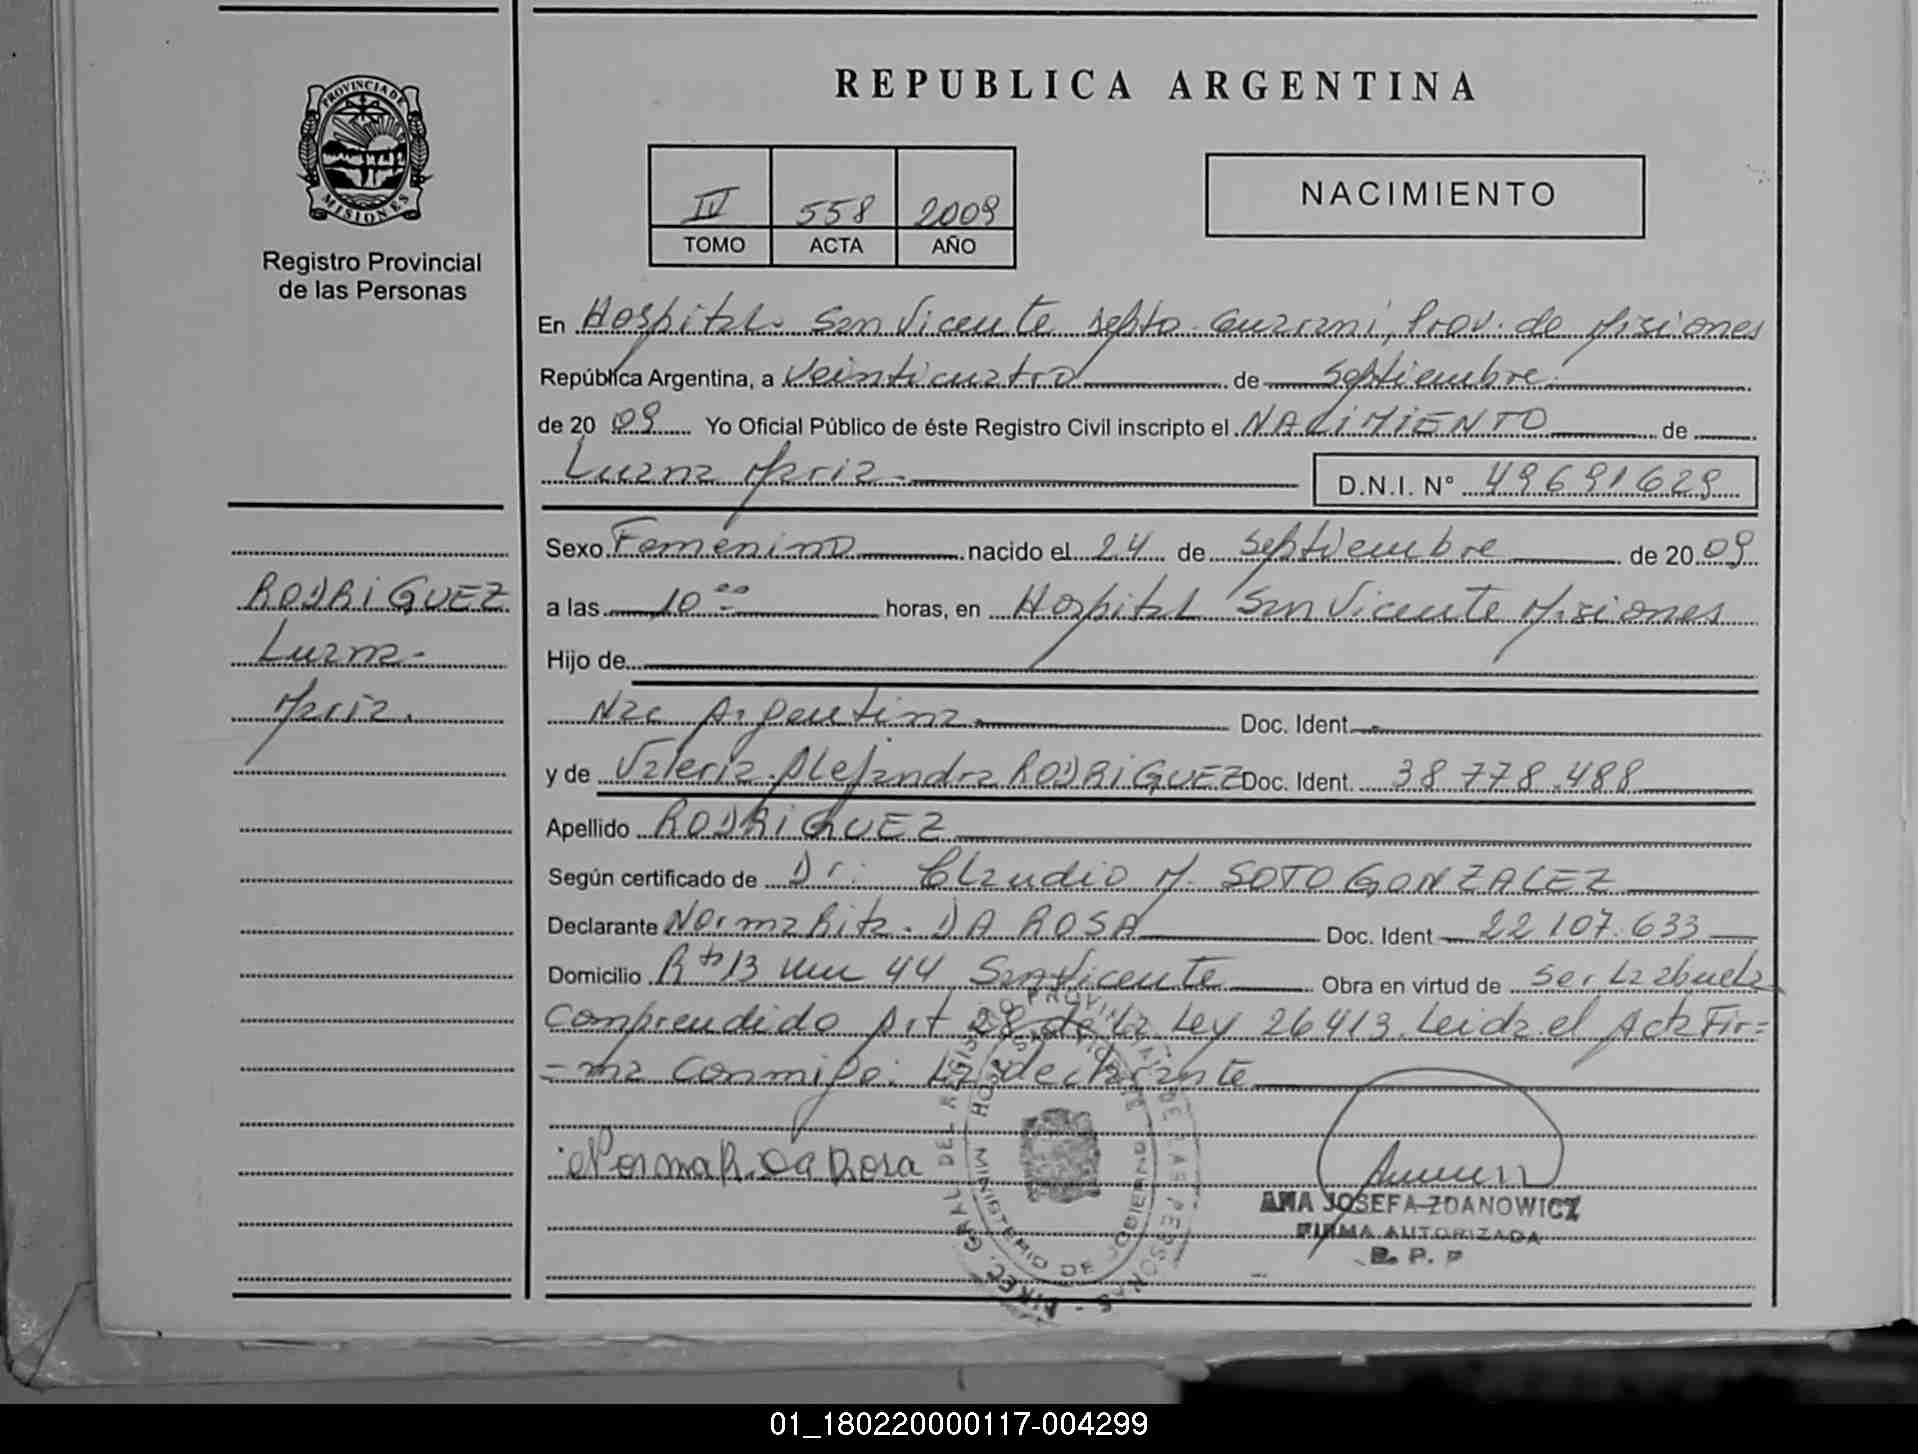 PROVINCIA DE
MISIONES
Registro Provincial
de las Personas
RODRIGUEZ
Luana
Maria.
REPUBLICA ARGENTINA
IV 558 2009
TOMO ACTA AÑO
NACIMIENTO
En Hospital San Vicente Depto. Guarani, Prov. de Misiones
República Argentina, a Veinticuatro de Septiembre
de 2009 Yo Oficial Público de éste Registro Civil inscripto el NACIMIENTO de
Luana Maria.
D.N.I. N° 49691629
Sexo Femenino nacido el 24 de Septiembre de 2009
a las 10 00 horas, en Hospital San Vicente Misiones
Hijo de
Nac Argentina Doc. Ident.
y de Valeria Alejandra RODRIGUEZ Doc. Ident. 38 778.488
Apellido RODRIGUEZ
Según certificado de Dr. Claudio M. SOTO GONZALEZ
Declarante Norma Rita. DA ROSA Doc. Ident 22 107.633
Domicilio Rta 13 km 44 San Vicente Obra en virtud de ser La abuela
comprendido Art 28 de La Ley 26413. Leida el Acta Fir=
=ma conmigo: La declarante
Norma R. Da Rosa
DIREC. GRAL. DEL REGISTRO PROVINCIAL DE LAS PERSONAS
HOSP. SAN VICENTE
MINISTERIO DE GOBIERNO
ANA JOSEFA ZDANOWICZ
FIRMA AUTORIZADA
R. P. P
01_180220000117-004299